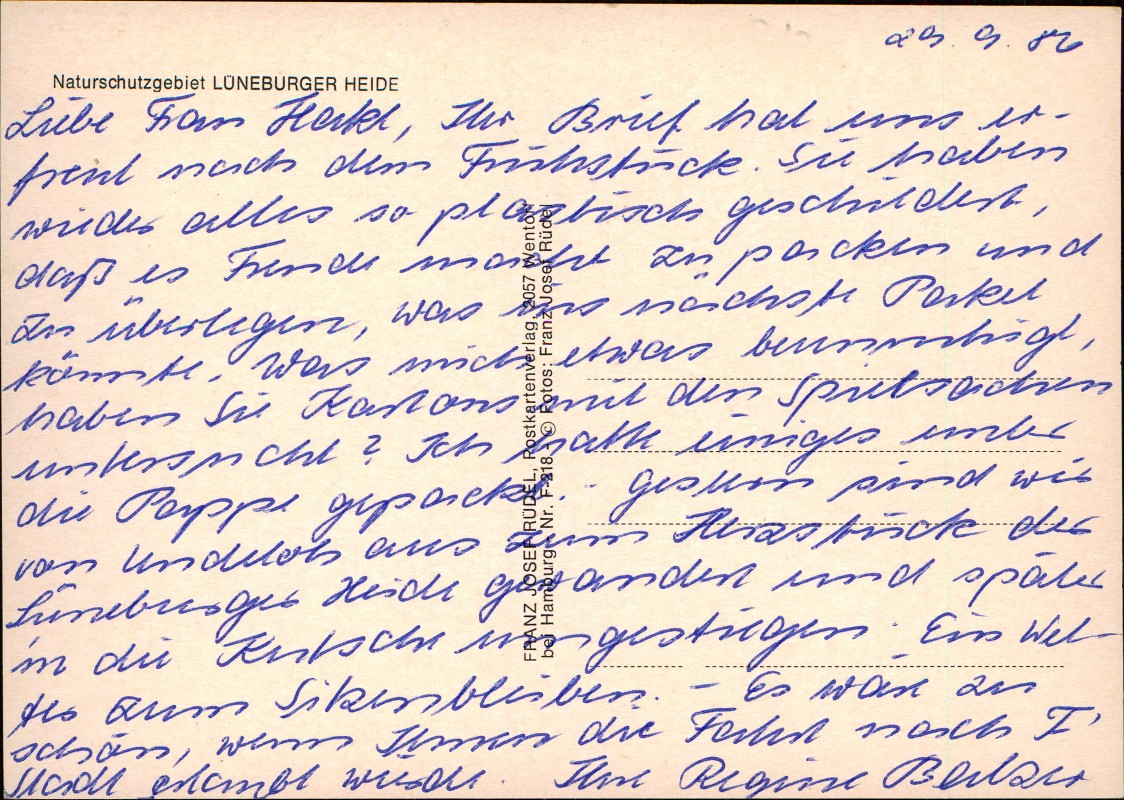 29. 9. 86
Naturschutzgebiet LÜNEBURGER HEIDE
Liebe Frau Hackl, Ihr Brief hat uns er-
freut nach dem Frühstück. Sie haben
wieder alles so plastisch geschildert,
daß es Freude macht zu packen und
zu überlegen, was ins nächste Paket
könnte. Was mich etwas beunruhigt,
haben Sie Kartons mit den Spielsachen
untersucht? Ich hatte einiges unter
die Pappe gepackt. – Gestern sind wir
von Undeloh aus zum Herzstück der
Lüneburger Heide gewandert und später
in die Kutsche umgestiegen. Ein Wet-
ter zum Sitzenbleiben. – Es wäre zu
schön, wenn Ihnen die Fahrt nach I'
stadt erlaubt würde. Ihre Regine
FRANZ JOSEF RÜDEL, Postkartenverlag, 2057 Wentorf
bei Hamburg - Nr. F-218 - © Fotos: Franz Josef Rüdel